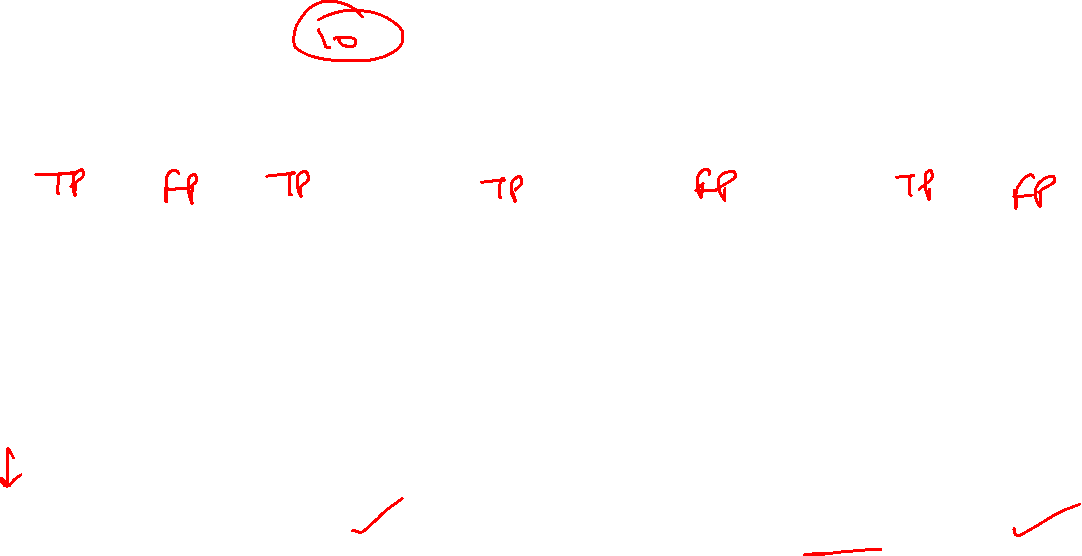 10
TP FP TP TP FP TP FP